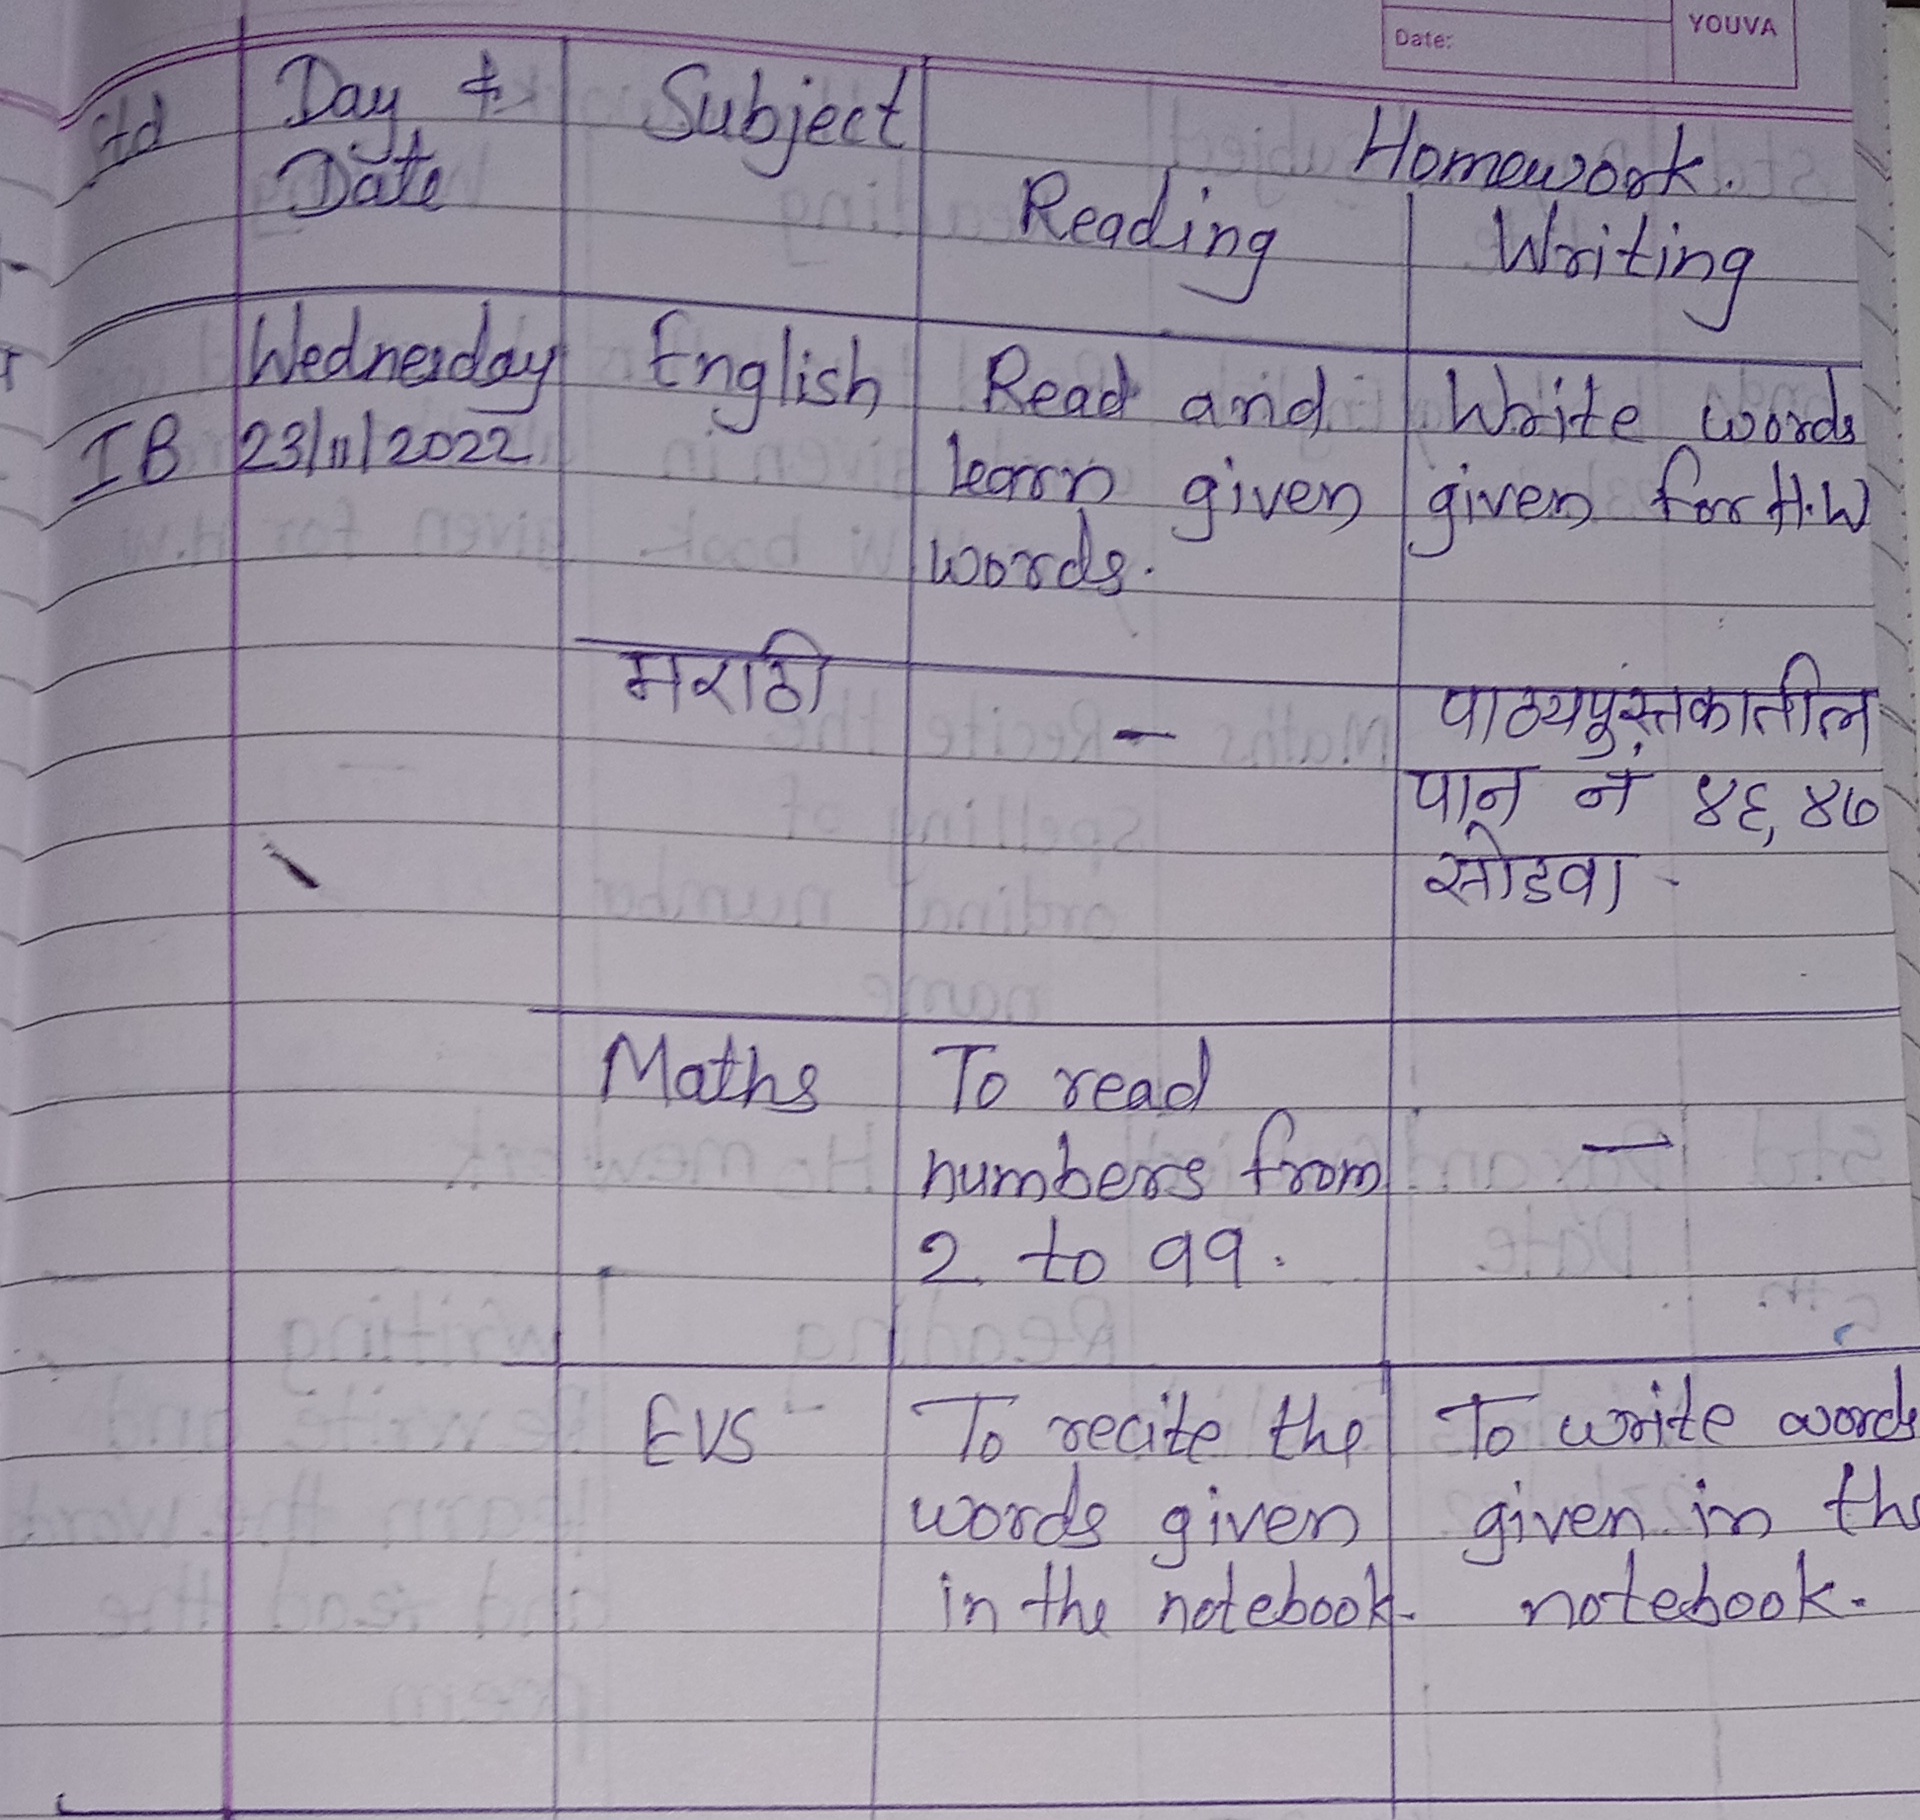 Date:
YOUVA
Std
Day &
Date
Subject
Homework.
Reading
Writing
Wednesday
IB 23/11/2022
English
Read and
learn given
words.
Write words
given for H.W
मराठी
—
पाठ्यपुस्तकातील
पान नं ४६, ४७
सोडवा -
Maths
To read
numbers from
2 to 99.
—
EVS
To recite the
words given
in the notebook.
To write words
given in the
notebook.